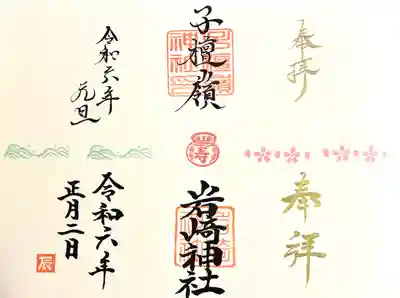 奉拝
子檀嶺
令和六年
元旦
寿
奉祥
岩崎神社
令和六年
正月二日
辰